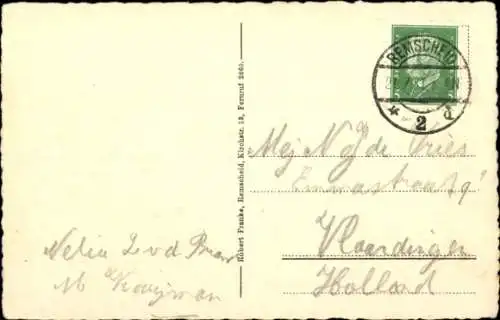 REMSCHEID
2 d
5
Mej N J de Vries
Emmastraat 9
Vlaardingen
Holland
Robert Franke, Remscheid, Kirchstr. 13, Fernruf 2005.
Nelia
M Kooijman